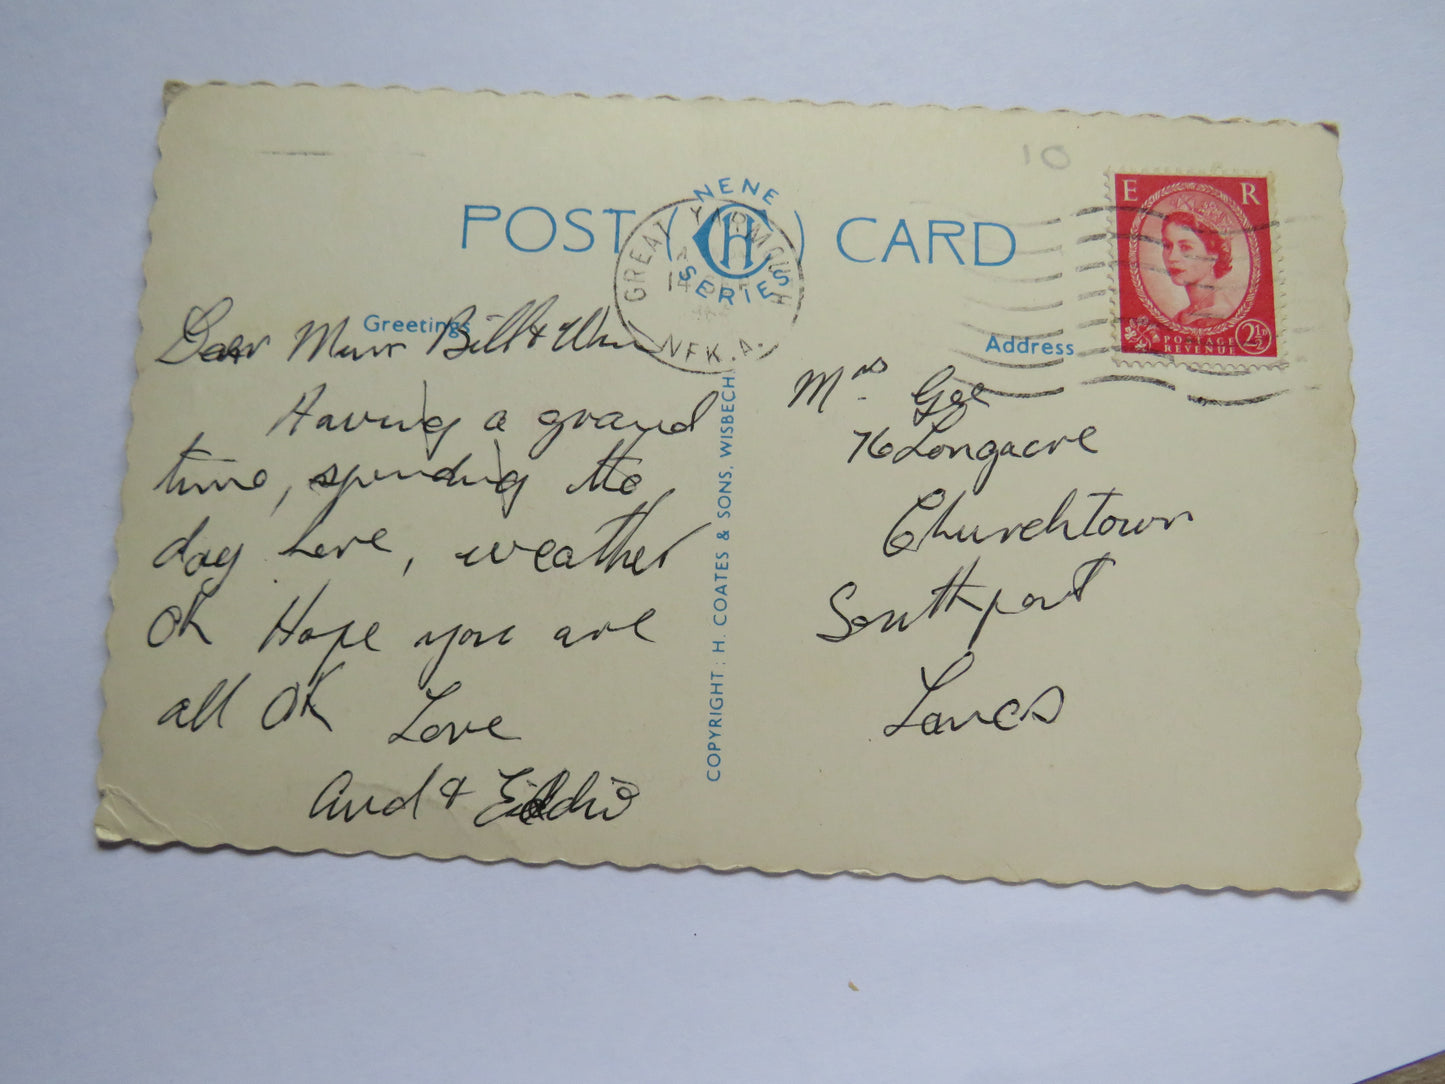 10
NENE
POST (CH) CARD
SERIES
GREAT YARMOUTH
14
NFK. A.
E R
2½D
POSTAGE
REVENUE
Greetings
Dear Mum Bill &
Having a grand
time, spending the
day here, weather
OK Hope you are
all OK Love
Aud & Eddie
COPYRIGHT: H. COATES & SONS, WISBECH
Address
Mrs Gee
76 Longacre
Churchtown
Southport
Lancs